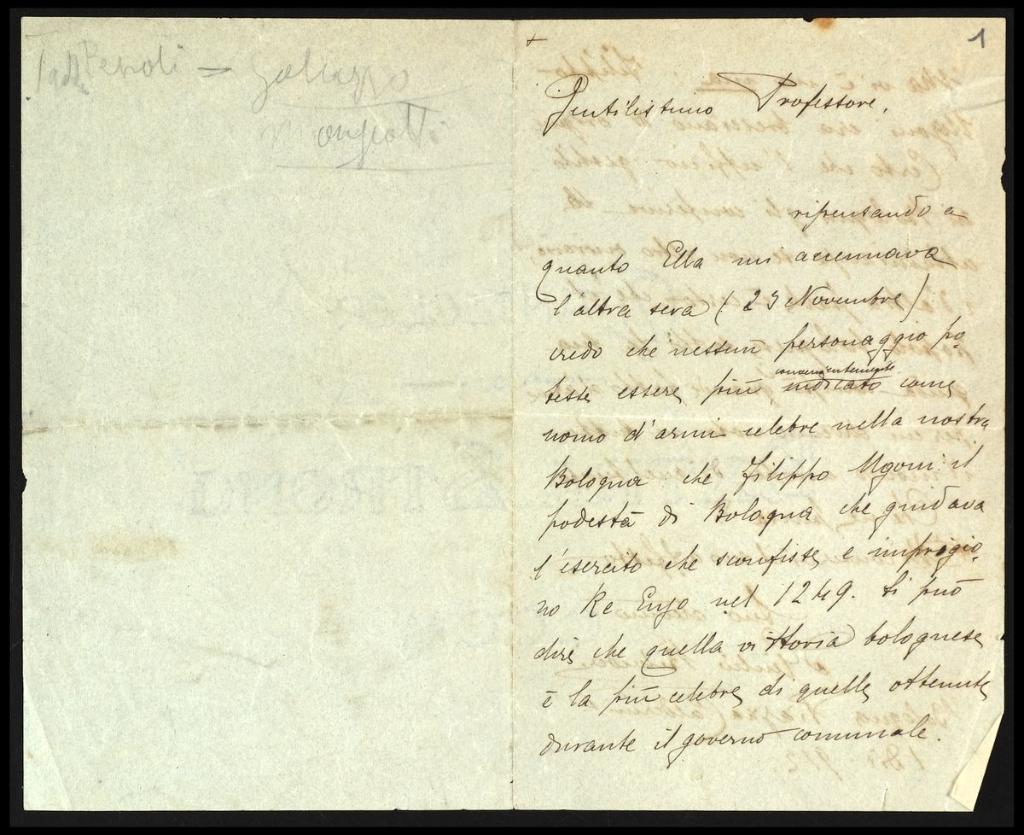 Pepoli = Galeazzo
1
Gentilissimo Professore,
ripensando a
quanto Ella mi accennava
l'altra sera (23 Novembre)
credo che nessun personaggio po-
tesse essere più convenientemente indicato come
uomo d'armi celebre nella nostra
Bologna che Filippo Ugoni il
podestà di Bologna che guidava
l'esercito che sconfisse e imprigio-
nò Re Enzo nel 1249. Si può
dire che quella vittoria bolognese
è la più celebre di quelle ottenute
durante il governo comunale.